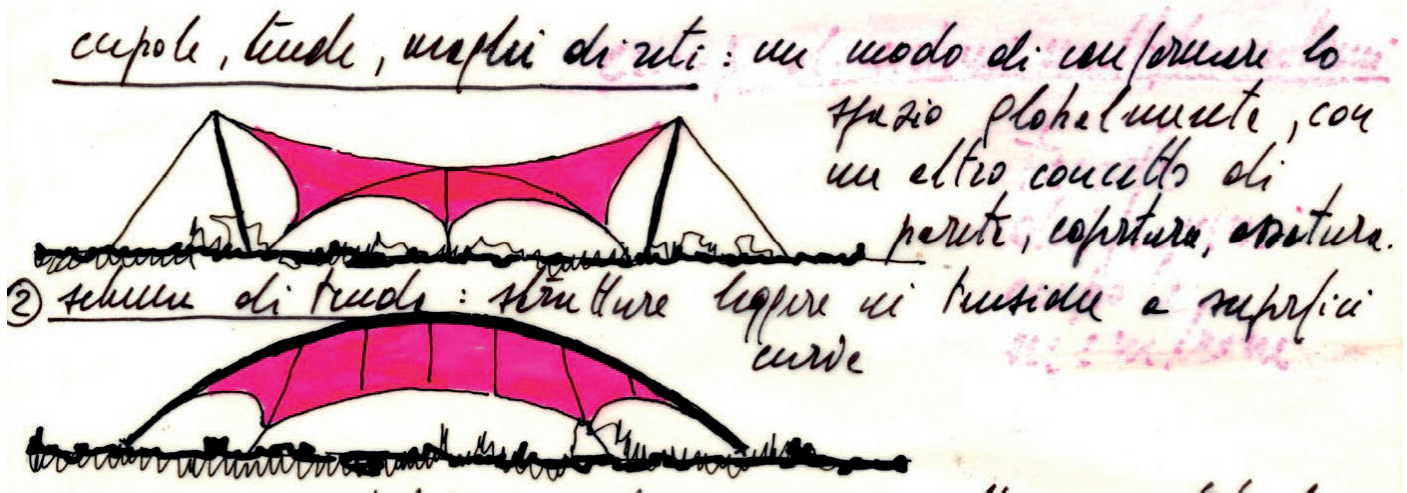 cupole, tende, maglie di reti : un modo di conformare lo
spazio globalmente, con
un altro concetto di
parete, copertura, ossatura.
② schema di tenda : strutture leggere in tensione a superfici
curve